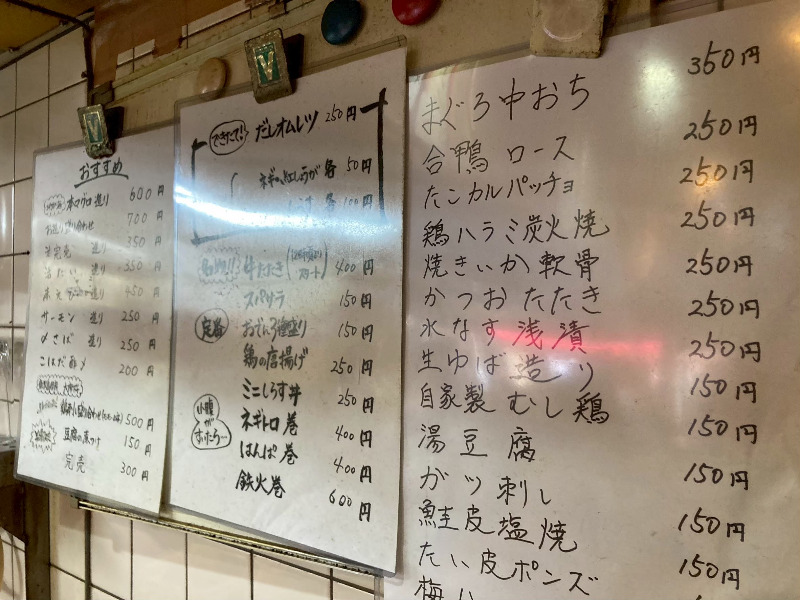 おすすめ
本マグロ造り 600円
700円
造り 350円
造り 350円
造り 450円
サーモン 造り 250円
〆さば 造り 250円
こはだ酢〆 200円
500円
豆腐の煮つけ 150円
完売 300円
できたて! だしオムレツ 250円
ネギ・紅しょうが 各 50円
各 100円
牛たたき スタート 400円
スパサラ 150円
定番 おでん3種盛り 150円
鶏の唐揚げ 250円
ミニしらす丼 250円
小腹が すいたら… ネギトロ巻 400円
はんぱ巻 400円
鉄火巻 600円
まぐろ中おち 350円
合鴨ロース 250円
たこカルパッチョ 250円
鶏ハラミ炭火焼 250円
焼きいか軟骨 250円
かつおたたき 250円
水なす浅漬 250円
生ゆば造り 150円
自家製むし鶏 150円
湯豆腐 150円
ガツ刺し 150円
鮭皮塩焼 150円
たい皮ポンズ
梅